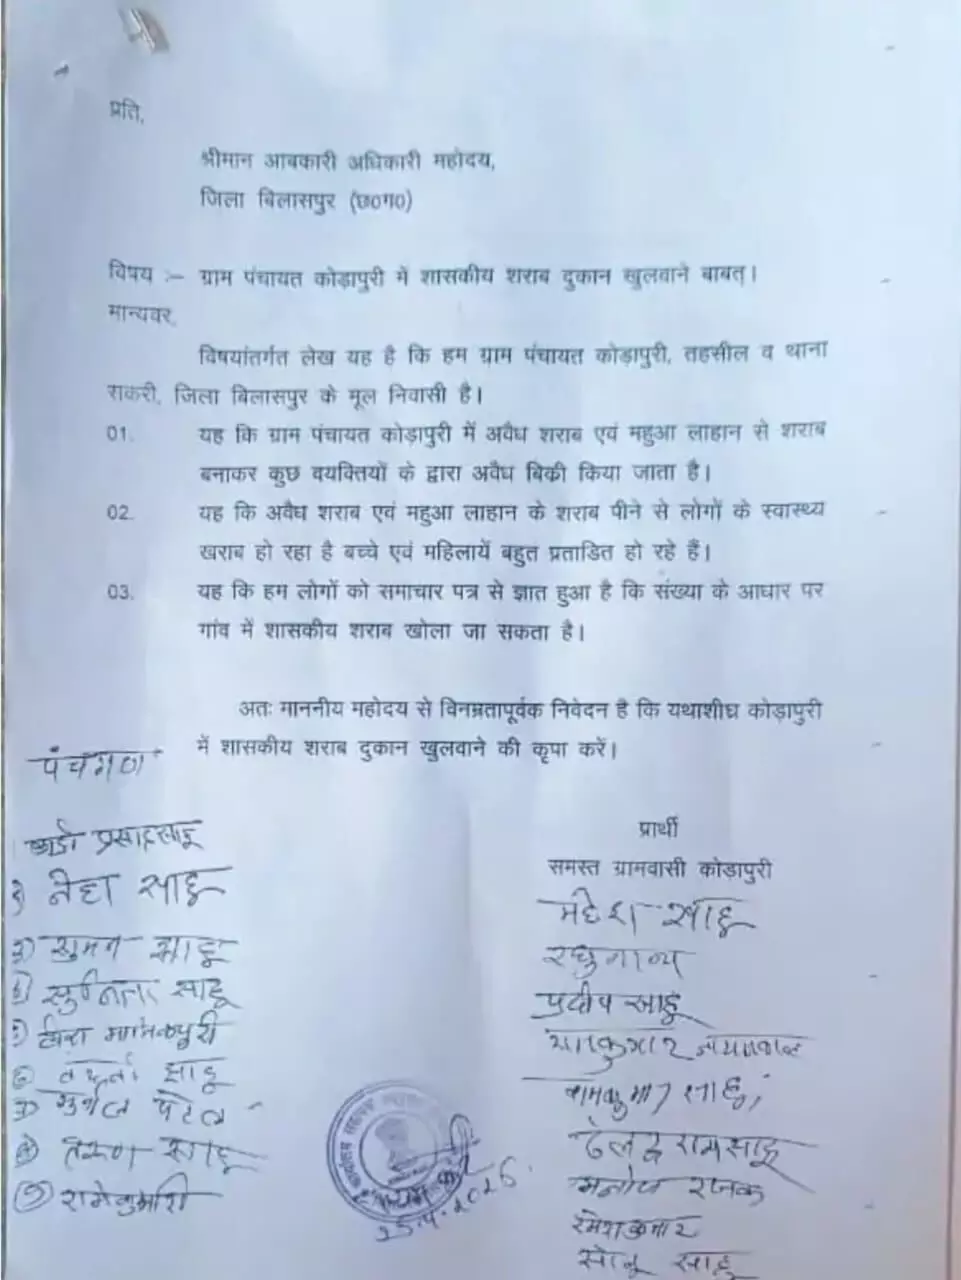 प्रति,
श्रीमान आबकारी अधिकारी महोदय,
जिला बिलासपुर (छ०ग०)
विषय :- ग्राम पंचायत कोड़ापुरी में शासकीय शराब दुकान खुलवाने बाबत्।
मान्यवर,
विषयांतर्गत लेख यह है कि हम ग्राम पंचायत कोड़ापुरी, तहसील व थाना
सकरी, जिला बिलासपुर के मूल निवासी है।
01. यह कि ग्राम पंचायत कोड़ापुरी में अवैध शराब एवं महुआ लाहान से शराब
बनाकर कुछ वयक्तियों के द्वारा अवैध बिक्री किया जाता है।
02. यह कि अवैध शराब एवं महुआ लाहान के शराब पीने से लोगों के स्वास्थ्य
खराब हो रहा है बच्चे एवं महिलायें बहुत प्रताडित हो रहे हैं।
03. यह कि हम लोगों को समाचार पत्र से ज्ञात हुआ है कि संख्या के आधार पर
गांव में शासकीय शराब खोला जा सकता है।
अतः माननीय महोदय से विनम्रतापूर्वक निवेदन है कि यथाशीघ्र कोड़ापुरी
में शासकीय शराब दुकान खुलवाने की कृपा करें।
पंचगण
प्रसाद साहू
नेहा साहू
सुमन साहू
सुनिता साहू
मानिकपुरी
साहू
पटेल
तरुण साहू
रामकुमारी
प्रार्थी
समस्त ग्रामवासी कोड़ापुरी
महेश साहू
रघुनाथ
प्रदीप साहू
जायसवाल
रामकुमार साहू
रामसाहू
मनोज रजक
रमेश कुमार
सोनू साहू